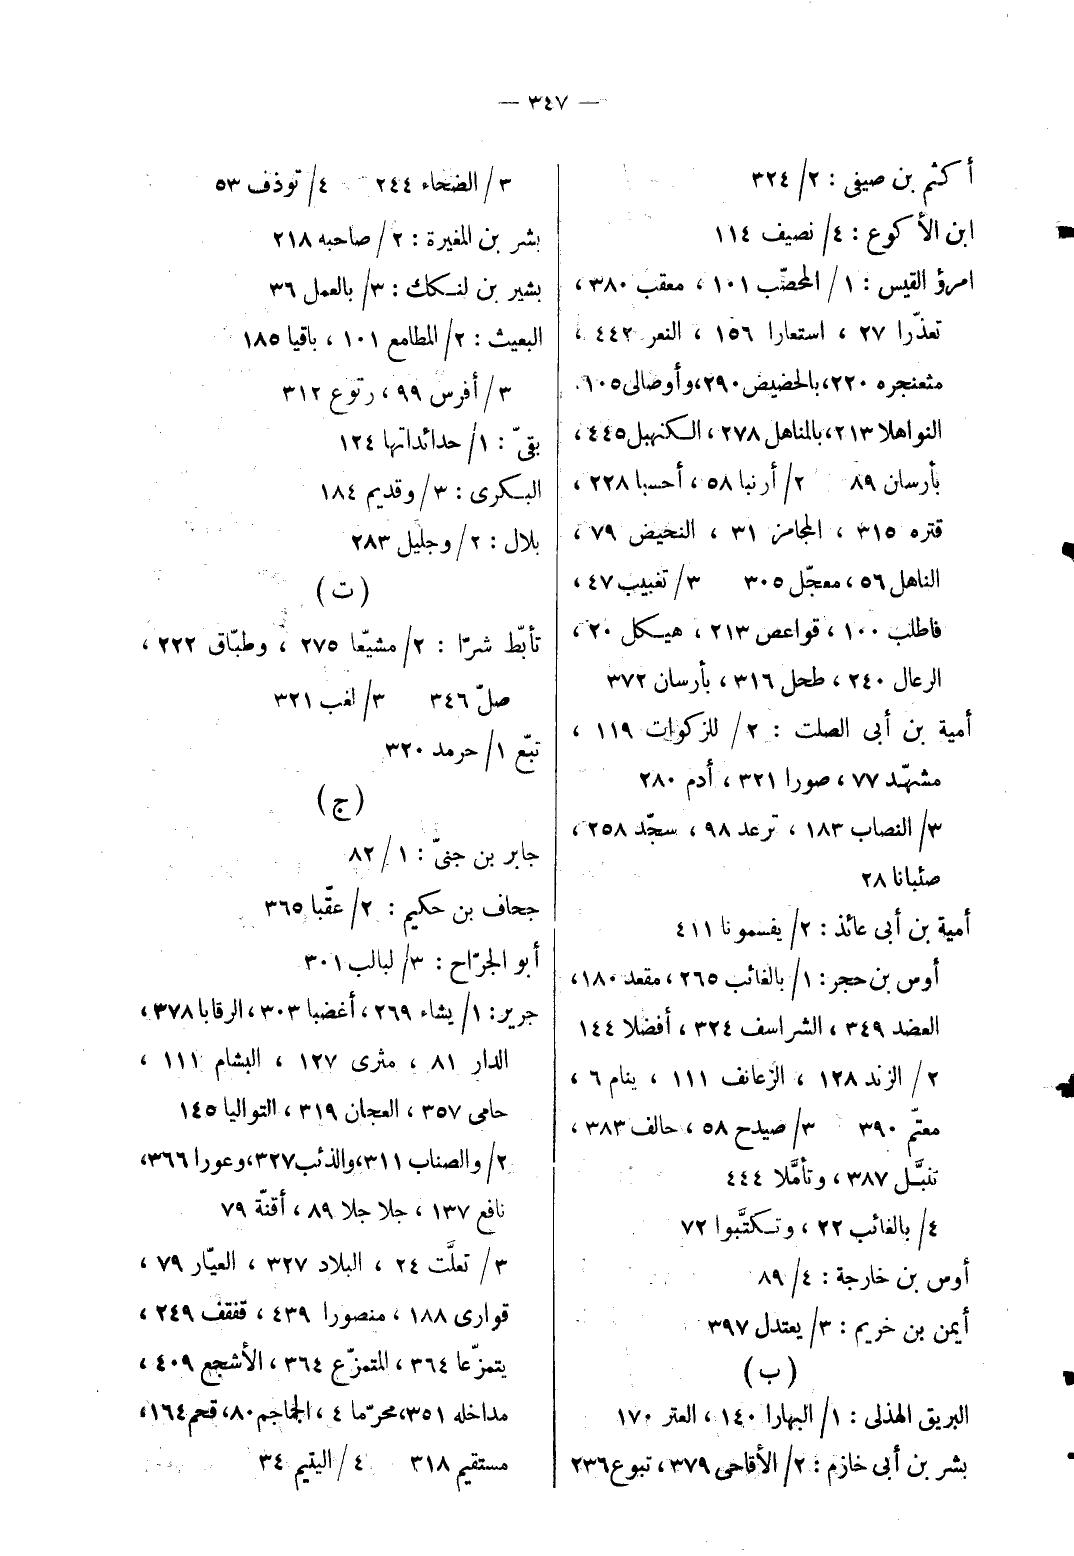 — ٣٤٧ —
أكثم بن صيفى : ٢/ ٣٢٤
ابن الأكوع : ٤/ نصيف ١١٤
امرؤ القيس : ١/ المحصّب ١٠١ ، معقب ٣٨٠ ،
تعذّرا ٢٧ ، استعارا ١٥٦ ، النعر ٤٤٢ ،
مثعنجره ٢٢٠ ، بالحضيض ٢٩٠ ، وأوصالى ٦٠٥.
النواهلا ٢١٣ ، بالمناهل ٢٧٨ ، الكنهبل ٤٤٥ ،
بأرسان ٨٩ ٢/ أرنبا ٥٨ ، أحسبا ٢٢٨ ،
قتره ٣١٥ ، المجامز ٣١ ، النحيض ٧٩ ،
الناهل ٥٦ ، معجّل ٣٠٥ ٣/ تغبيب ٤٧ ،
فاطلب ١٠٠ ، قواعص ٢١٣ ، هيكل ٢٠ ،
الرعال ٢٤٠ ، طحل ٣١٦ ، بأرسان ٣٧٢
أمية بن أبى الصلت : ٢/ للزكوات ١١٩ ،
مشهّد ٧٧ ، صورا ٣٢١ ، أدم ٢٨٠
٣/ النصاب ١٨٣ ، ترعد ٩٨ ، سجّد ٢٥٨ ،
صئبانا ٢٨
أمية بن أبى عائذ : ٢/ يفسمونا ٤١١
أوس بن حجر : ١/ بالغائب ٢٦٥ ، مقعد ١٨٠ ،
العضد ٣٤٩ ، الشراسف ٣٢٤ ، أفضلا ١٤٤
٢/ الزند ١٢٨ ، الزعانف ١١١ ، ينام ٦ ،
معتّم ٣٩٠ ٣/ صيدح ٥٨ ، حالف ٣٨٣ ،
تنبَّل ٣٨٧ ، وتأمَّلا ٤٤٤
٤/ بالغائب ٢٢ ، وتكتَّبوا ٧٢
أوس بن خارجة : ٤/ ٨٩
أيمن بن خريم : ٣/ يعتدل ٣٩٧
(ب)
البريق الهذلى : ١/ البهارا ١٤٠ ، العتر ١٧٠
بشر بن أبى خازم : ٢/ الأقاحى ٣٧٩ ، تبوع ٢٣٦
٣/ الضحاء ٢٤٤ ٤/ توذف ٥٣
بشر بن المغيرة : ٢/ صاحبه ٢١٨
بشير بن لنكك : ٣/ بالعمل ٣٦
البعيث : ٢/ المطامع ١٠١ ، باقيا ١٨٥
٣/ أفرس ٩٩ ، رتوع ٣١٢
بقىّ : ١/ حدائداتها ١٢٤
البكرى : ٣/ وقديم ١٨٤
بلال : ٢/ وجليل ٢٨٣
(ت)
تأبّط شرّا : ٢/ مشيّعا ٢٧٥ ، وطبّاق ٢٢٢ ،
صلّ ٣٤٦ ٣/ لغب ٣٢١
تبّع ١/ حرمد ٣٢٠
(ج)
جابر بن جنىّ : ١/ ٨٢
جحاف بن حكيم : ٢/ عقّبا ٣٦٥
أبو الجرّاح : ٣/ لبالب ٣٠١
جرير : ١/ يشاء ٢٦٩ ، أغضبا ٣٠٣ ، الرقابا ٣٧٨ ،
الدار ٨١ ، مثرى ١٢٧ ، البشام ١١١ ،
حامى ٣٥٧ ، العجان ٣١٩ ، التواليا ١٤٥
٢/ والصناب ٣١١ ، والذئب ٣٢٧ ، وعورا ٣٦٦ ،
نافع ١٣٧ ، جلاجلا ٨٩ ، أقنّة ٧٩
٣/ تعلَّت ٢٤ ، البلاد ٣٢٧ ، العيّار ٧٩ ،
قوارى ١٨٨ ، منصورا ٤٣٩ ، قفقف ٢٤٩ ،
يتمزّعا ٣٦٤ ، المتمزّع ٣٦٤ ، الأشجع ٤٠٩ ،
مداخله ٣٥١ ، محرّما ٤ ، الجماجم ٨٠ ، قحم ١٦٤ ،
مستقيم ٣١٨ ٤/ اليتيم ٣٤